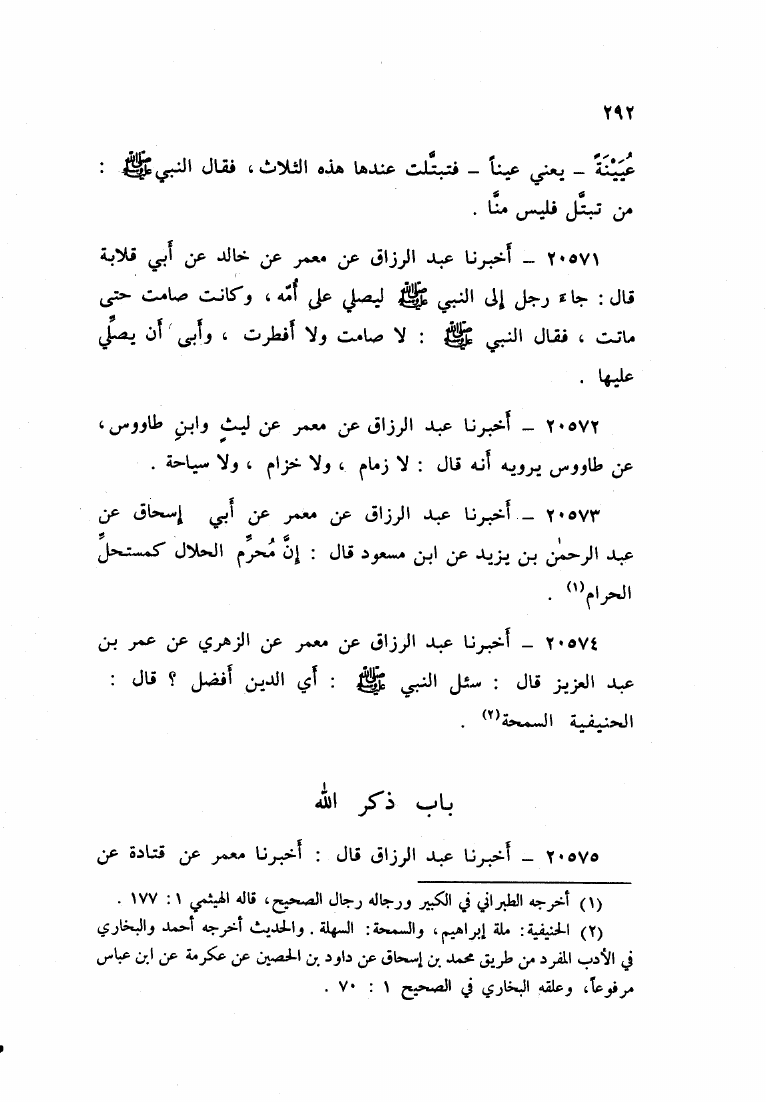 ٢٩٢
عُيَيْنَةً – يعني عيناً – فتبتَّلت عندها هذه الثلاث ، فقال النبي ﷺ :
من تبتَّل فليس منَّا .
٢٠٥٧١ – أخبرنا عبد الرزاق عن معمر عن خالد عن أبي قلابة
قال : جاء رجل إلى النبي ﷺ ليصلي على أُمّه ، وكانت صامت حتى
ماتت ، فقال النبي ﷺ : لا صامت ولا أفطرت ، وأبى أن يصلِّي
عليها .
٢٠٥٧٢ – أخبرنا عبد الرزاق عن معمر عن ليثٍ وابنِ طاووس ،
عن طاووس يرويه أنه قال : لا زمام ، ولا خزام ، ولا سياحة .
٢٠٥٧٣ – أخبرنا عبد الرزاق عن معمر عن أبي إسحاق عن
عبد الرحمٰن بن يزيد عن ابن مسعود قال : إنَّ مُحرِّم الحلال كمستحلِّ
الحرام(١) .
٢٠٥٧٤ – أخبرنا عبد الرزاق عن معمر عن الزهري عن عمر بن
عبد العزيز قال : سئل النبي ﷺ : أي الدين أفضل ؟ قال :
الحنيفية السمحة(٢) .
باب ذكر الله
٢٠٥٧٥ – أخبرنا عبد الرزاق قال : أخبرنا معمر عن قتادة عن
(١) أخرجه الطبراني في الكبير ورجاله رجال الصحيح، قاله الهيثمي ١ : ١٧٧ .
(٢) الحنيفية: ملة إبراهيم، والسمحة: السهلة . والحديث أخرجه أحمد والبخاري
في الأدب المفرد من طريق محمد بن إسحاق عن داود بن الحصين عن عكرمة عن ابن عباس
مرفوعاً، وعلقه البخاري في الصحيح ١ : ٧٠ .